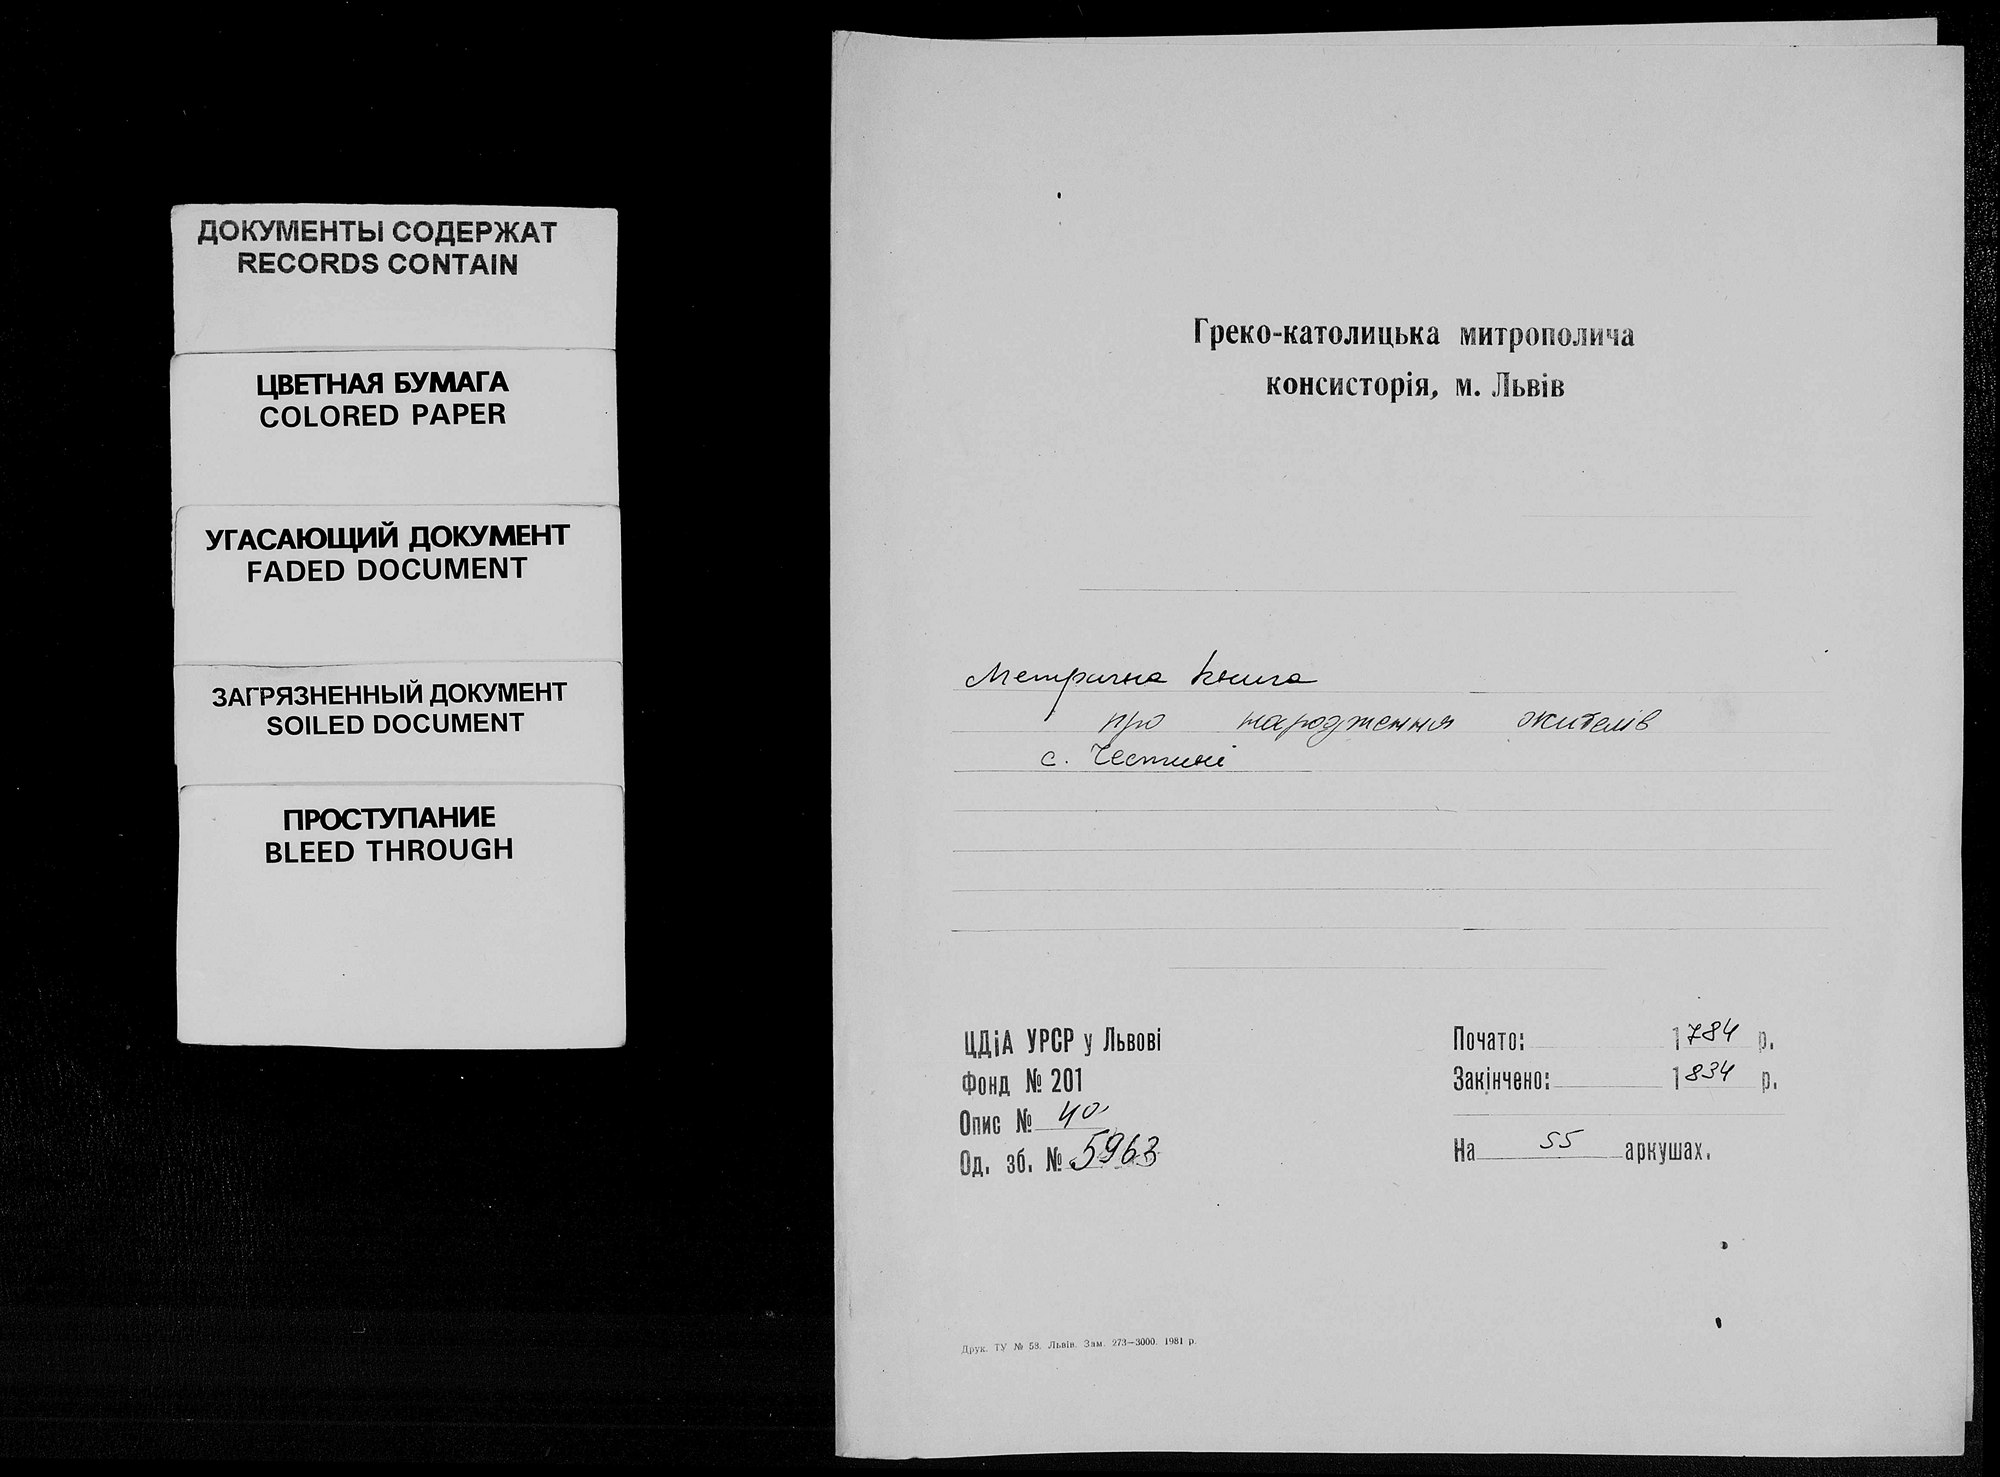 ДОКУМЕНТЫ СОДЕРЖАТ
RECORDS CONTAIN
ЦВЕТНАЯ БУМАГА
COLORED PAPER
УГАСАЮЩИЙ ДОКУМЕНТ
FADED DOCUMENT
ЗАГРЯЗНЕННЫЙ ДОКУМЕНТ
SOILED DOCUMENT
ПРОСТУПАНИЕ
BLEED THROUGH
Греко-католицька митрополича
консисторія, м. Львів
Метрична книга
про народження жителів
с. Честині
ЦДіА УРСР у Львові
Фонд № 201
Опис № 40
Од. зб. № 5963
Почато: 1784 р.
Закінчено: 1834 р.
На 55 аркушах.
Друк. ТУ № 58. Львів. Зам. 273—3000. 1981 р.